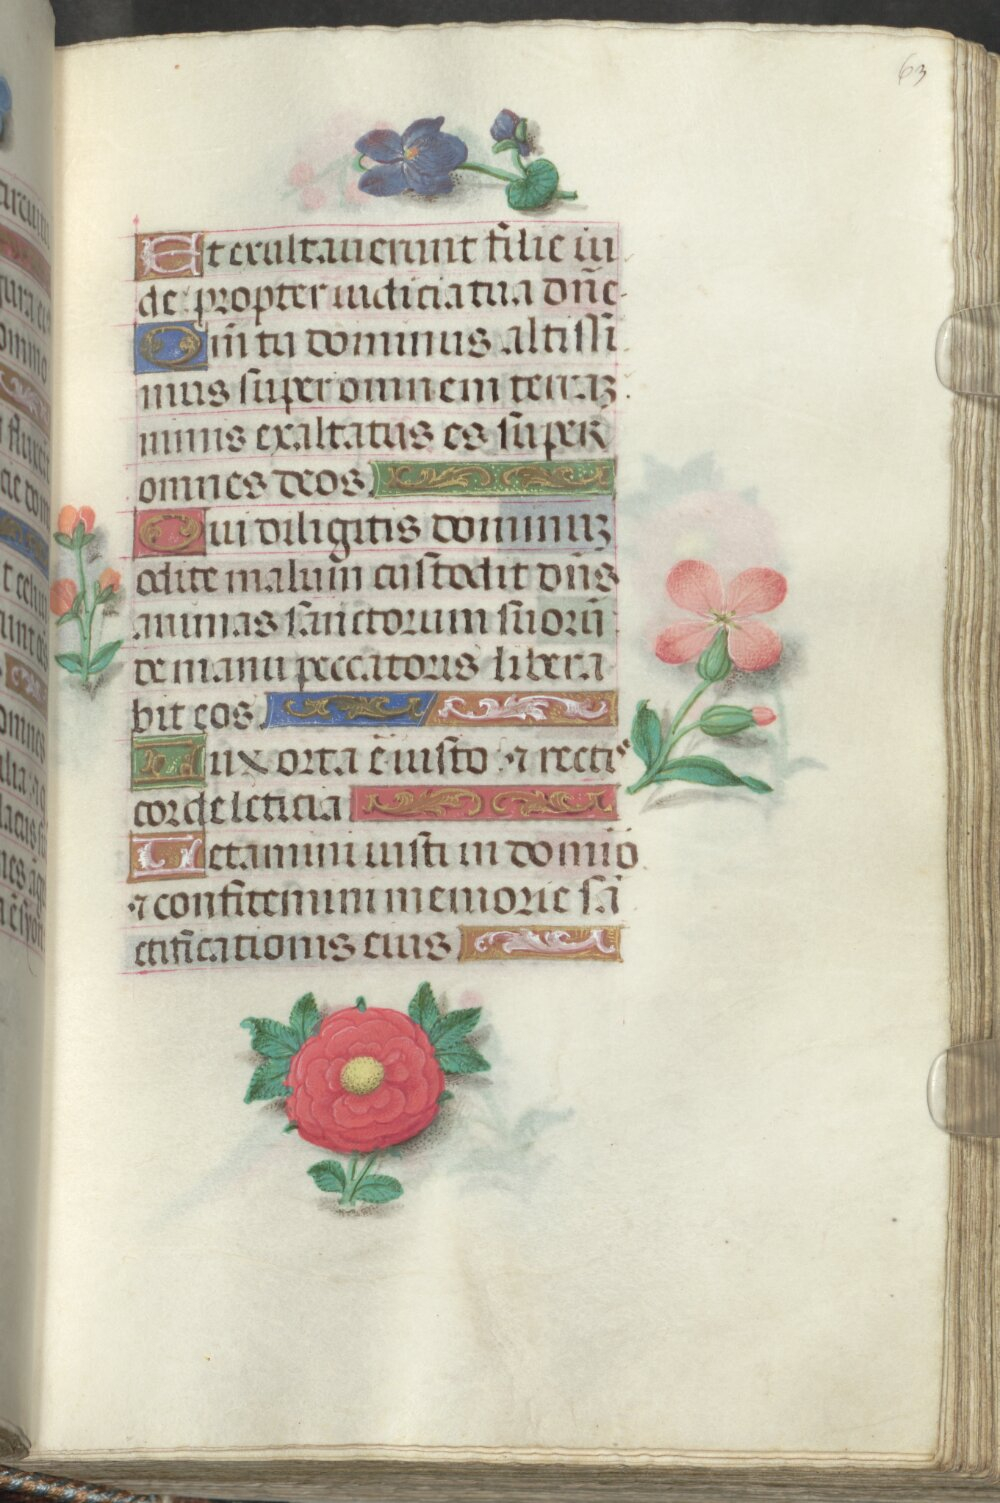 63
Et exultauerunt filie iu
de propter iudicia tua dn̄e
Qm̄ tu dominus altissi
mus super omnem terraʒ
nimis exaltatus es super
omnes deos
Qui diligitis dominuʒ
odite malum custodit dn̄s
animas sanctorum suorū
de manu peccatoris libera
bit eos
Lux orta ē iusto ⁊ rectis
corde leticia
Letamini iusti in domīo
⁊ confitemini memorie sā
ctificationis eius